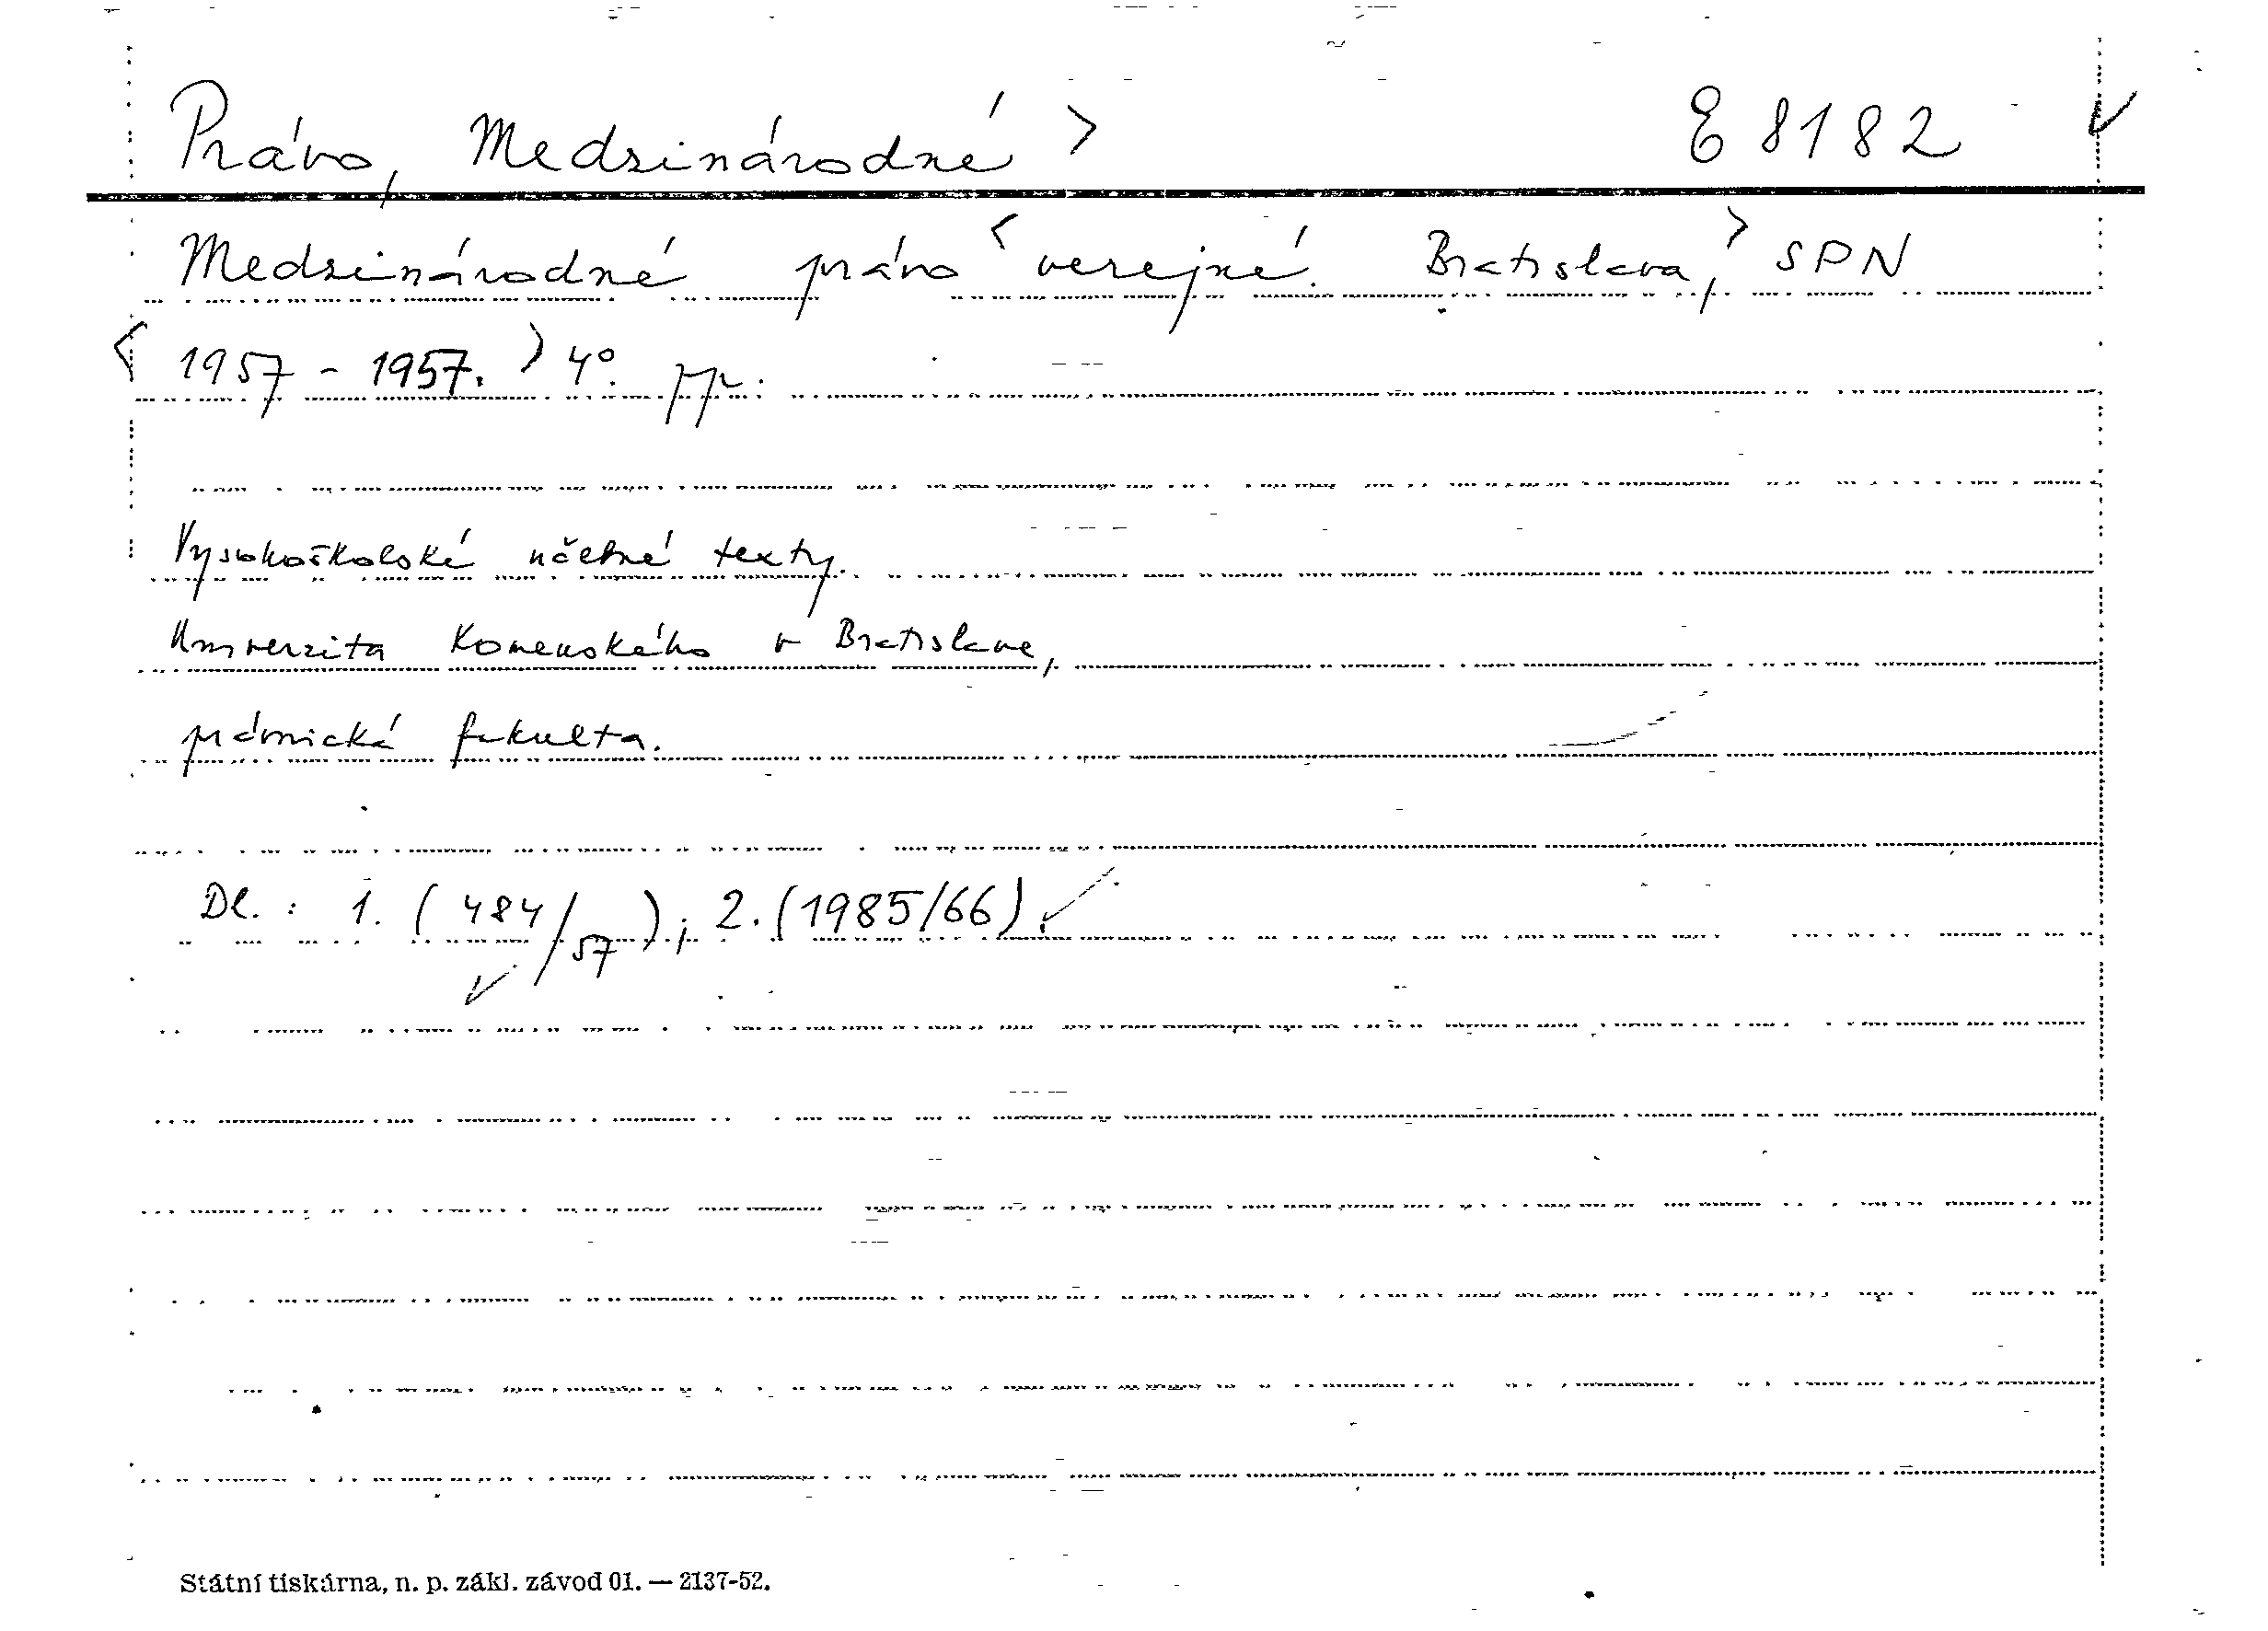 Právo, Medzinárodné > E 8182 ✓
Medzinárodné právo < verejné. Bratislava, > SPN
< 1957 - 1957. > 4°. pp.
Vysokoškolské učebné texty.
Univerzita Komenského v Bratislave,
právnická fakulta.
Dl. : 1. ( 484/57 ) ; 2. (1985/66). ✓
✓
Státní tiskárna, n. p. zákl. závod 01. — 2137-52.